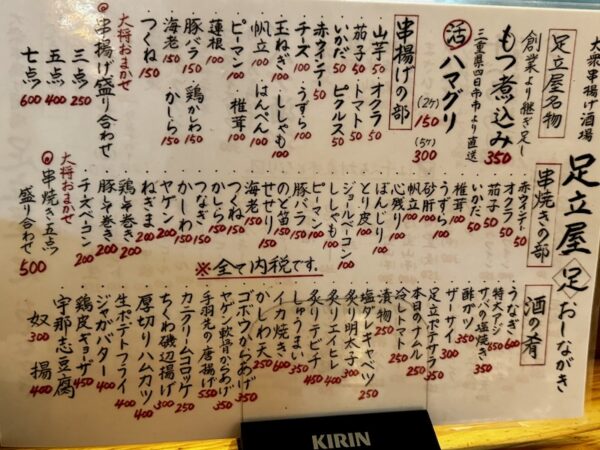 大衆串揚げ酒場
足立屋
足
おしながき
足立屋名物
創業より継ぎ足し
もつ煮込み 350
三重県四日市市より直送
活 ハマグリ (2ケ) 150 (5ケ) 300
串揚げの部
山芋 50
オクラ 50
茄子 50
トマト 50
いかだ 50
ピクルス 50
赤ウインナー 50
チーズ 100
うずら 100
玉ねぎ 100
ししゃも 100
帆立 100
はんぺん 100
ピーマン 100
椎茸 100
蓮根 100
豚バラ 150
鶏かわ 150
海老 150
かしら 150
つくね 150
大将おまかせ
串揚げ盛り合わせ
三点 250
五点 400
七点 600
串焼きの部
赤ウインナー 50
オクラ 50
茄子 50
いかだ 50
椎茸 100
うずら 100
砂肝 100
帆立 100
心残り 100
ぼんじり 100
とり皮 100
ジョールベーコン 100
ししゃも 100
ピーマン 100
豚バラ 150
のど笛 150
せせり 150
海老 150
つくね 150
かしら 150
つなぎ 150
かしわ 150
ヤゲン 200
ねぎま 200
鶏しそ巻き 200
豚しそ巻き 200
チーズベーコン 200
大将おまかせ
串焼き五点
盛り合わせ 500
※全て内税です。
酒の肴
うなぎ 600
特大アジ 650
サバの塩焼き 350
酢ガツ 350
ザーサイ 300
足立ポテサラ 350
本日のナムル 250
冷しトマト 250
漬物 250
塩ダレキャベツ 250
炙り明太子 300
炙りエイヒレ 400
炙りテビチ 350
しゅうまい 450
イカ焼き 600
かしわ天 250
ゴボウからあげ 350
ヤゲン軟骨からあげ 350
手羽先の唐揚げ 550
カニクリームコロッケ 250
ちくわ磯辺揚げ 300
厚切りハムカツ 400
生ポテトフライ 300
ジャガバター 400
鶏皮ギョーザ 450
宇那志豆腐 400
奴 300
揚 400
KIRIN